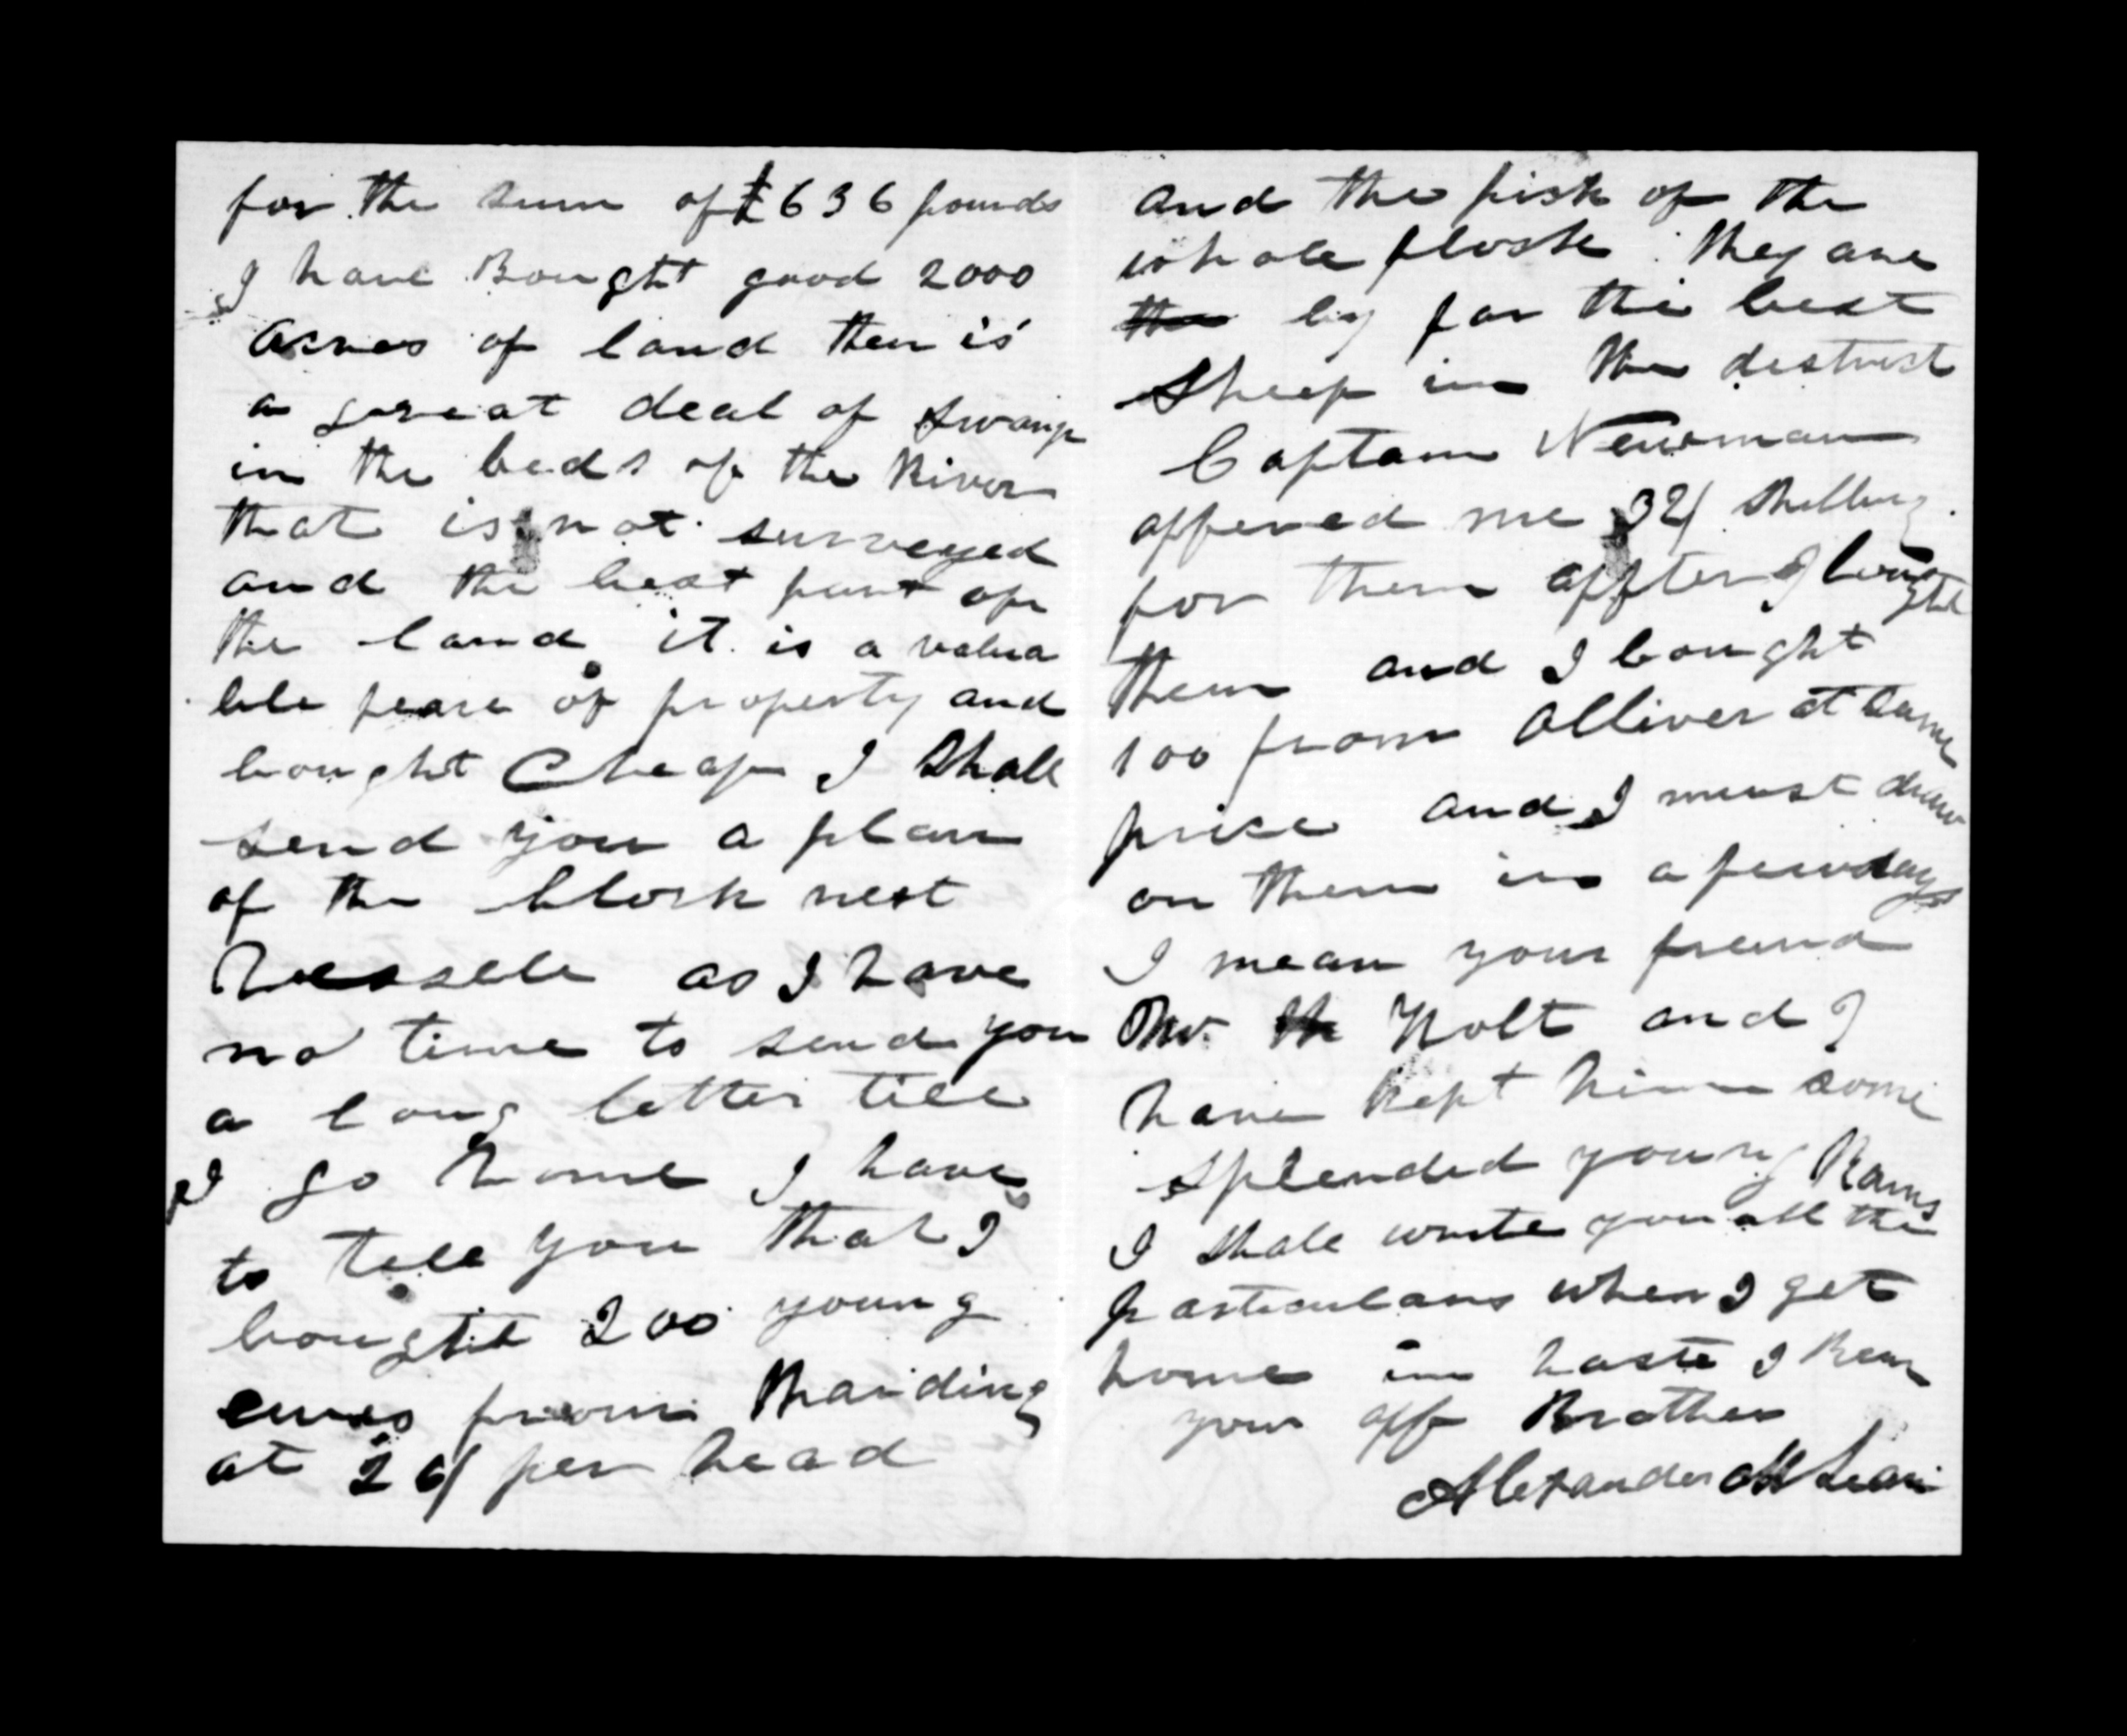 for the sum of £636 pounds
I have Bought good 2000
acres of land ther is
a great deal of swamp
in the beds of the River
that is not surveyed
and the best part of
the land it is a valua
ble peace of property and
bought Cheap I shall
send you a plan
of the block next
vessell as I have
no time to send you
a long letter till
I go home I have
to tell you that I
bought 200 young
ewes from Harding
at 26/ per head
and the pick of the
whole flock they are
the by far the best
sheep in the destrect
Captam Newman
offered me 32/ shilling
for them affter I bought
them and I bought
100 from Olliver at same
price and I must draw
on them in a few days
I mean your freind
Mr. Holt and I
have kept him some
splended young Rams
I shall write you all the
particulars when I get
home in haste I Rem
your aff Brother
Alexander McLean